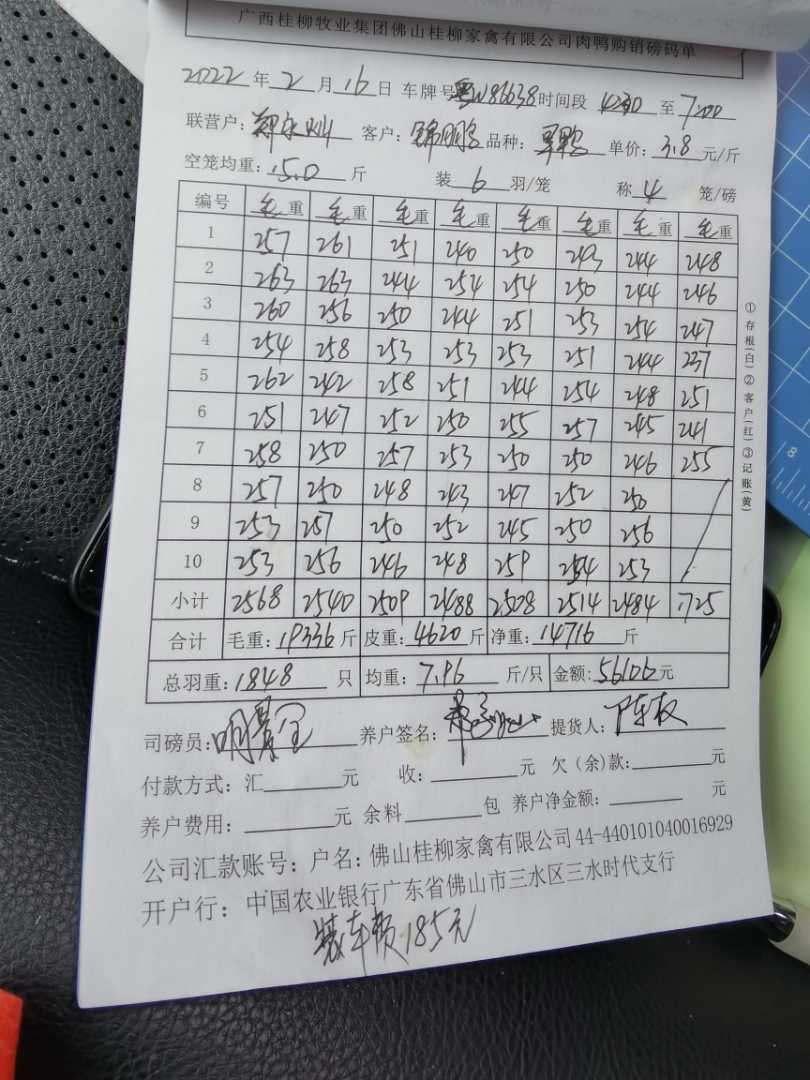 广西桂柳牧业集团佛山桂柳家禽有限公司肉鸭购销磅码单
2022 年 2 月 16 日 车牌号 粤W86638 时间段 4230 至 7200
联营户: 郑永灿 客户: 锦鹏 品种: 单价: 3.8 元/斤
空笼均重: 15.0 斤 装 6 羽/笼 称 4 笼/磅
编号 毛重 毛重 毛重 毛重 毛重 毛重 毛重 毛重
1 257 261 251 240 250 243 244 248
2 263 263 244 254 254 250 244 246
3 260 256 250 244 251 253 254 247
4 254 258 253 253 253 251 244 237
5 262 242 258 251 244 254 248 251
6 251 247 252 250 255 257 245 241
7 258 250 257 253 250 250 246 255
8 257 250 248 243 247 252 250
9 253 257 250 252 245 250 256
10 253 256 246 248 259 254 253
小计 2568 2540 2509 2488 2508 2514 2484 1725
合计 毛重: 19336 斤 皮重: 4620 斤 净重: 14716 斤
总羽重: 1848 只 均重: 7.96 斤/只 金额: 56106 元
司磅员: 养户签名: 提货人: 陈权
付款方式: 汇 元 收: 元 欠(余)款: 元
养户费用: 元 余料 包 养户净金额: 元
公司汇款账号: 户名: 佛山桂柳家禽有限公司 44-440101040016929
开户行: 中国农业银行广东省佛山市三水区三水时代支行
装车费185元
①存根(白)②客户(红)③记账(黄)
8